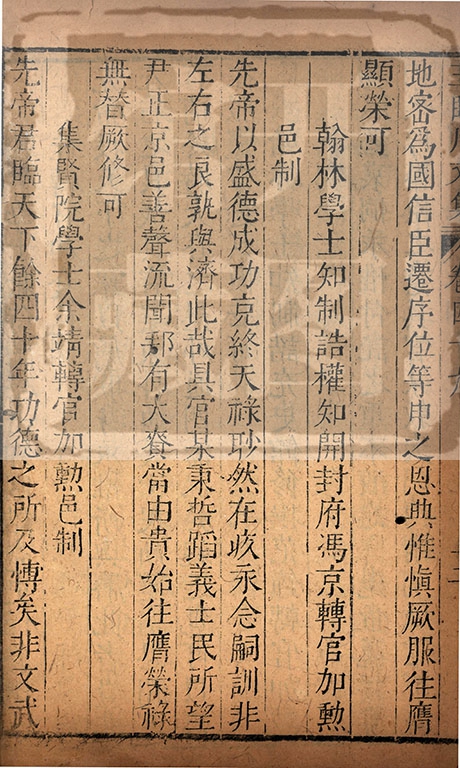 地密爲國信臣遷序位等申之恩典惟愼厥服往膺
顯榮可
翰林學士知制誥權知開封府馮京轉官加勲
邑制
先帝以盛德成功克終天祿眇然在疚永念嗣訓非
左右之良孰與濟此哉具官某秉哲蹈義士民所望
尹正京邑善聲流聞邦有大賚當由貴始往膺榮祿
無替厥修可
集賢院學士余靖轉官加勲邑制
先帝君臨天下餘四十年功德之所及博矣非文武